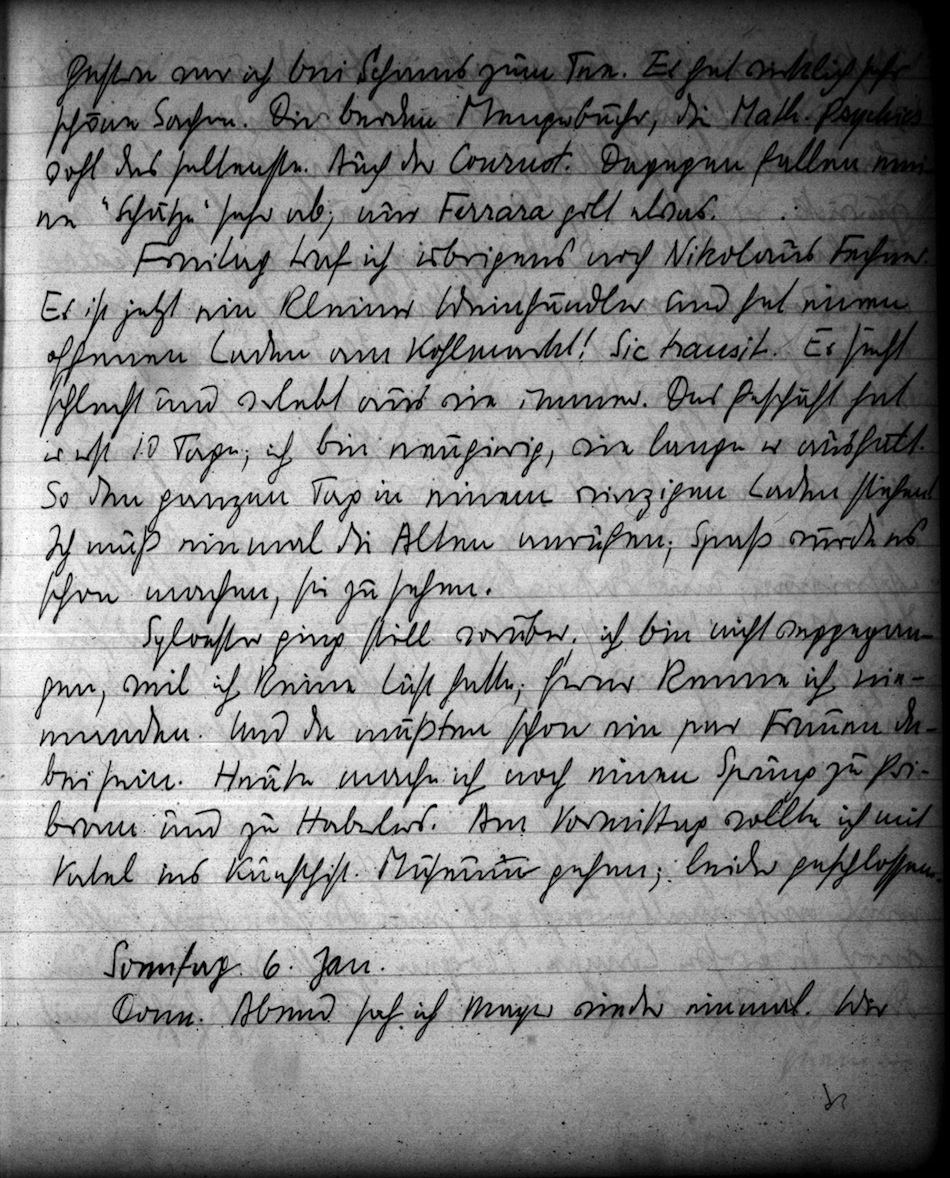 Gestern war ich bei Schams zum Tee. Er hat wirklich sehr
schöne Sachen. Die beiden Mengerbücher, die Math. Psychics
wohl das seltenste. Auch der Cournot. Dagegen fallen mei-
ne "Schätze" sehr ab; nur Ferrara gilt etwas.
Freitag traf ich übrigens noch Nikolaus
Er ist jetzt ein kleiner Weinhändler und hat einen
offenen Laden am Kohlmarkt! Sic transit. Er sieht
schlecht und verlebt aus wie immer. Das Geschäft hat
er erst 10 Tage; ich bin neugierig, wie lange er aushält.
So den ganzen Tag in einem winzigen Laden stehen!
Ich muß einmal die Alten anrufen; Spaß würde es
schon machen, sie zu sehen.
Sylvester ging still vorüber; ich bin nicht weggegan-
gen, weil ich keine Lust hatte; ferner kenne ich nie-
manden. Und da müßten schon ein paar Frauen da-
bei sein. Heute mache ich noch einen Sprung zu Pri-
bram und zu Haberler. Am Vormittag wollte ich mit
ins Kunsthist. Museum gehen; leider geschlossen.
Sonntag. 6. Jan.
Donn. Abend sah ich Mayer wieder einmal. Wir